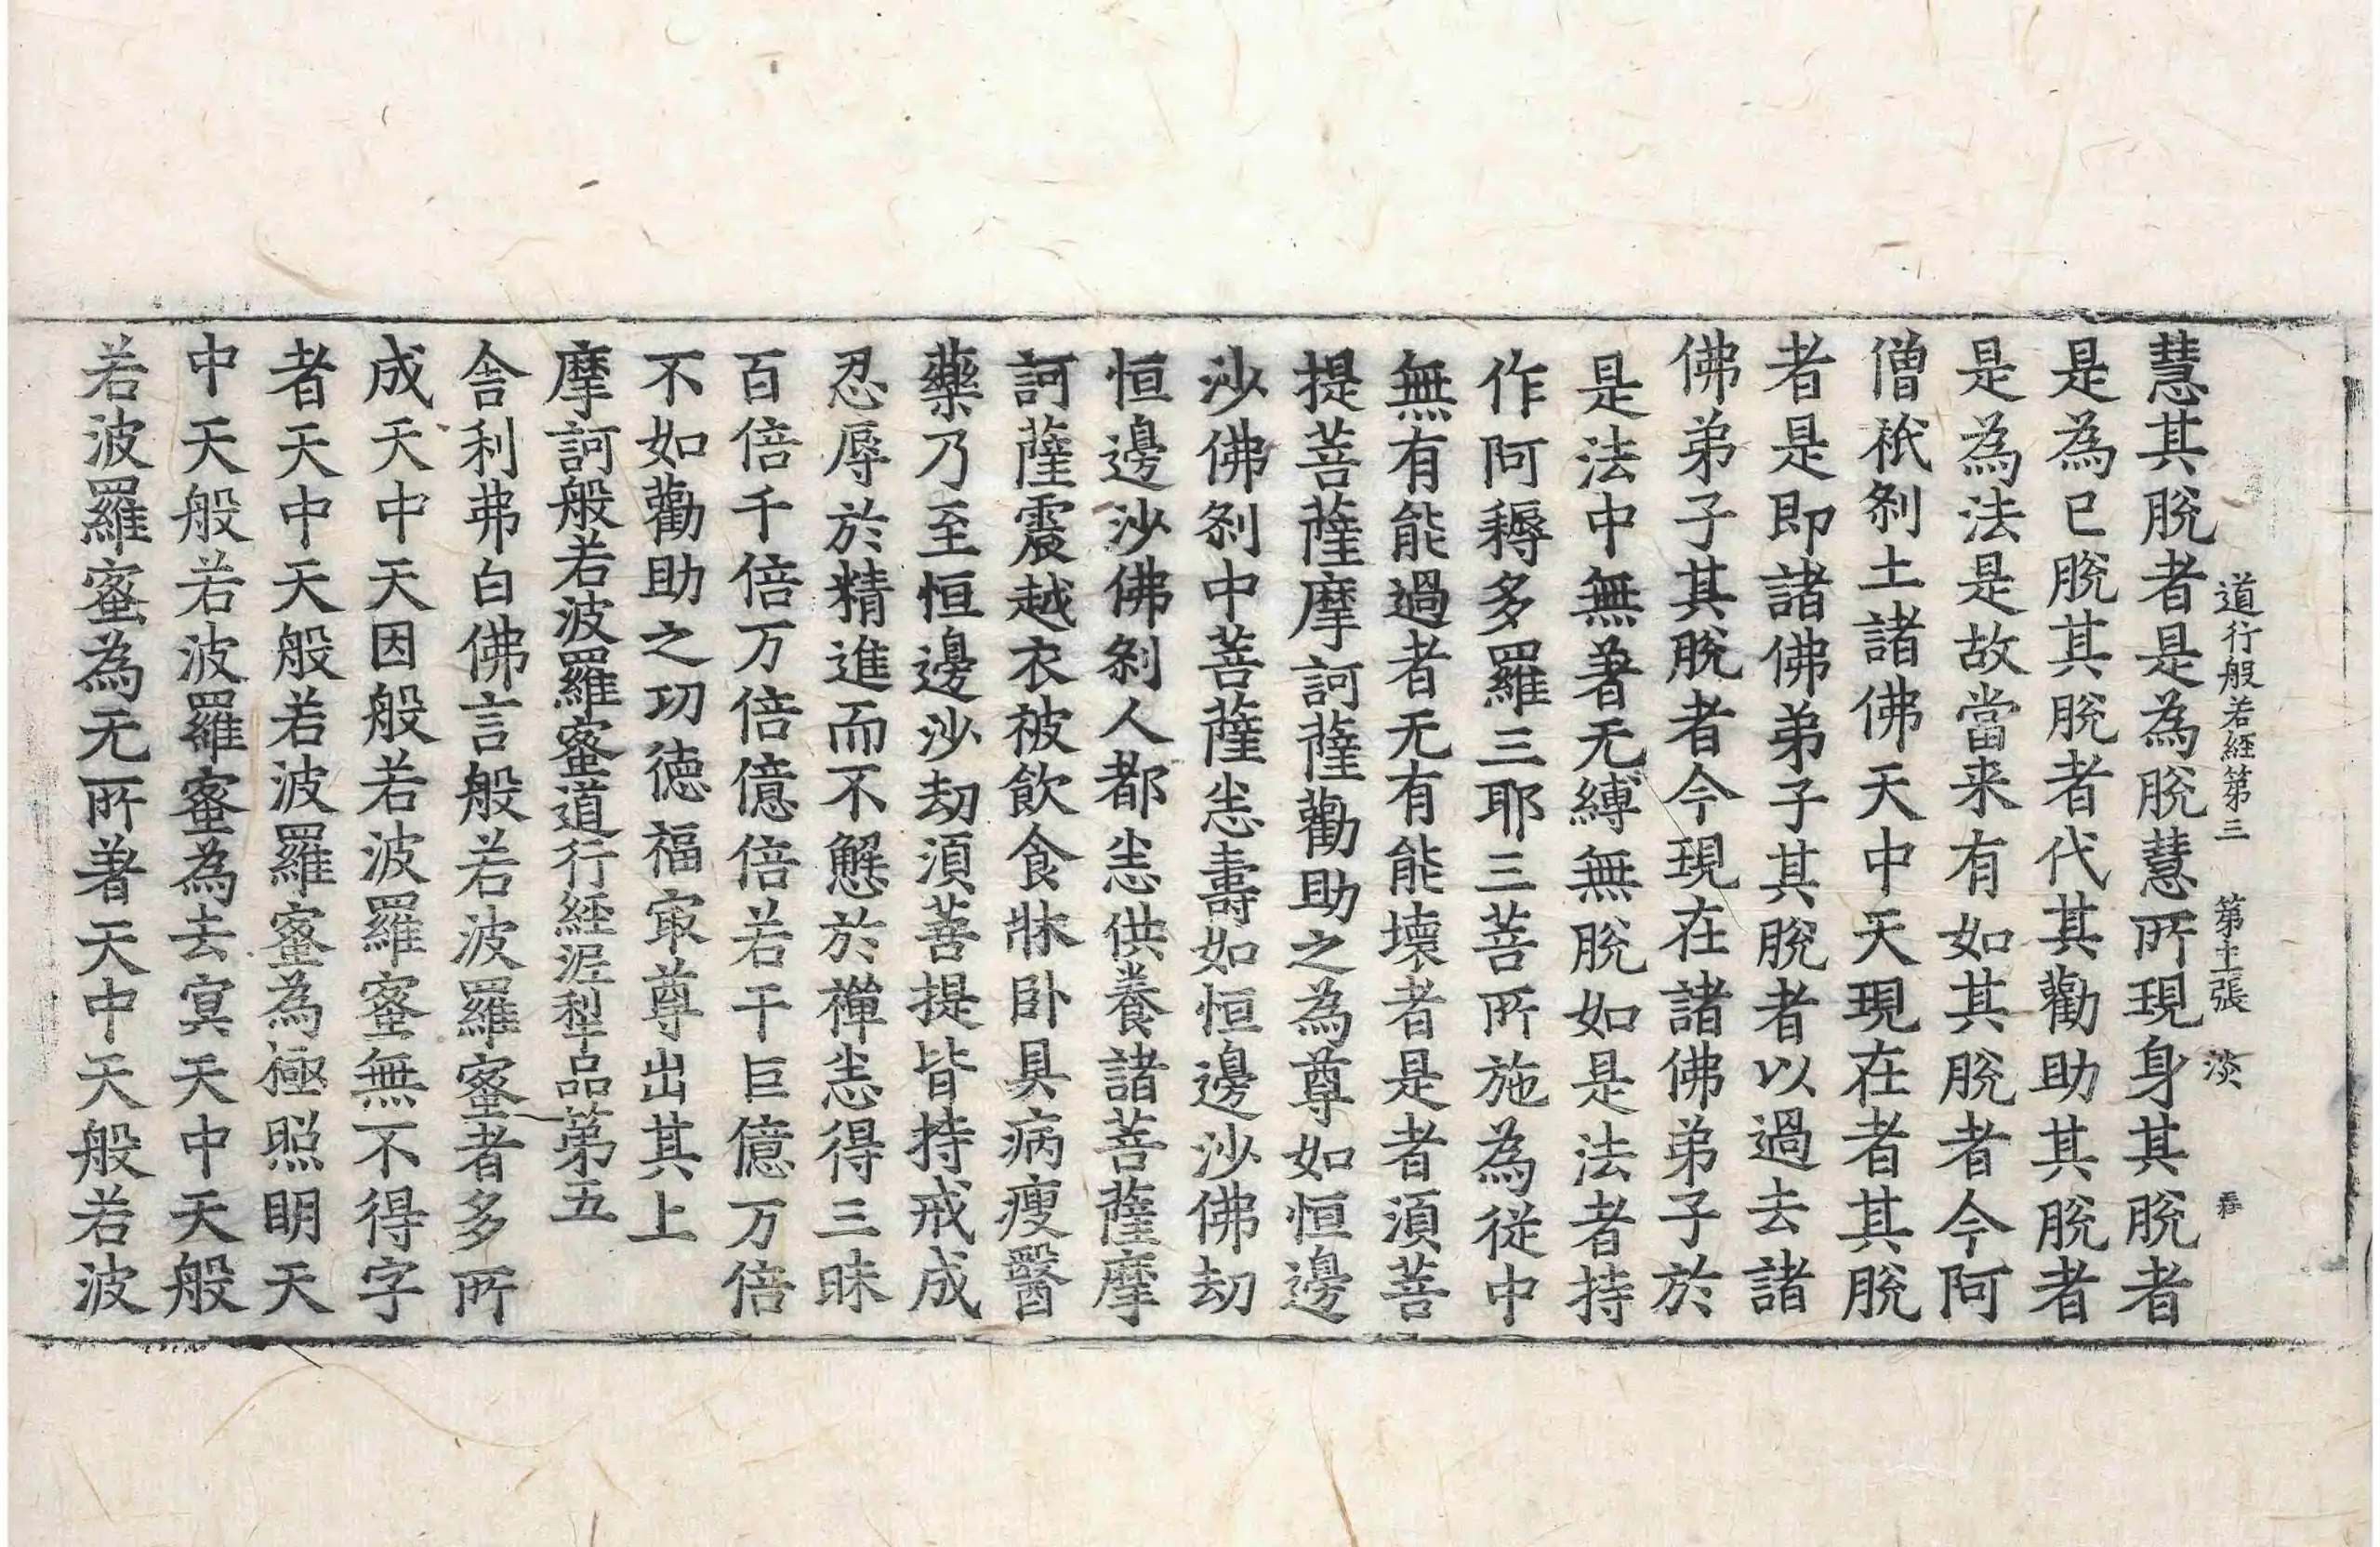 道行般若經第三 第十二張 淡
慧其脫者是為脫慧所現身其脫者
是為已脫其脫者代其勸助其脫者
是為法是故當来有如其脫者今阿
僧祇剎土諸佛天中天現在者其脫
者是即諸佛弟子其脫者以過去諸
佛弟子其脫者今現在諸佛弟子於
是法中無著无縛無脫如是法者持
作阿耨多羅三耶三菩所施為從中
無有能過者无有能壞者是者須菩
提菩薩摩訶薩勸助之為尊如恒邊
沙佛剎中菩薩恙壽如恒邊沙佛劫
恒邊沙佛剎人都恙供養諸菩薩摩
訶薩震越衣被飲食牀卧具病瘦醫
藥乃至恒邊沙劫須菩提皆持戒成
忍辱於精進而不懈於禪恙得三昧
百倍千倍万倍億倍若干巨億万倍
不如勸助之功德福㝡尊出其上
摩訶般若波羅蜜道行經泥犁品第五
舎利弗白佛言般若波羅蜜者多所
成天中天因般若波羅蜜無不得字
者天中天般若波羅蜜為極照明天
中天般若波羅蜜為去冥天中天般
若波羅蜜為无所著天中天般若波